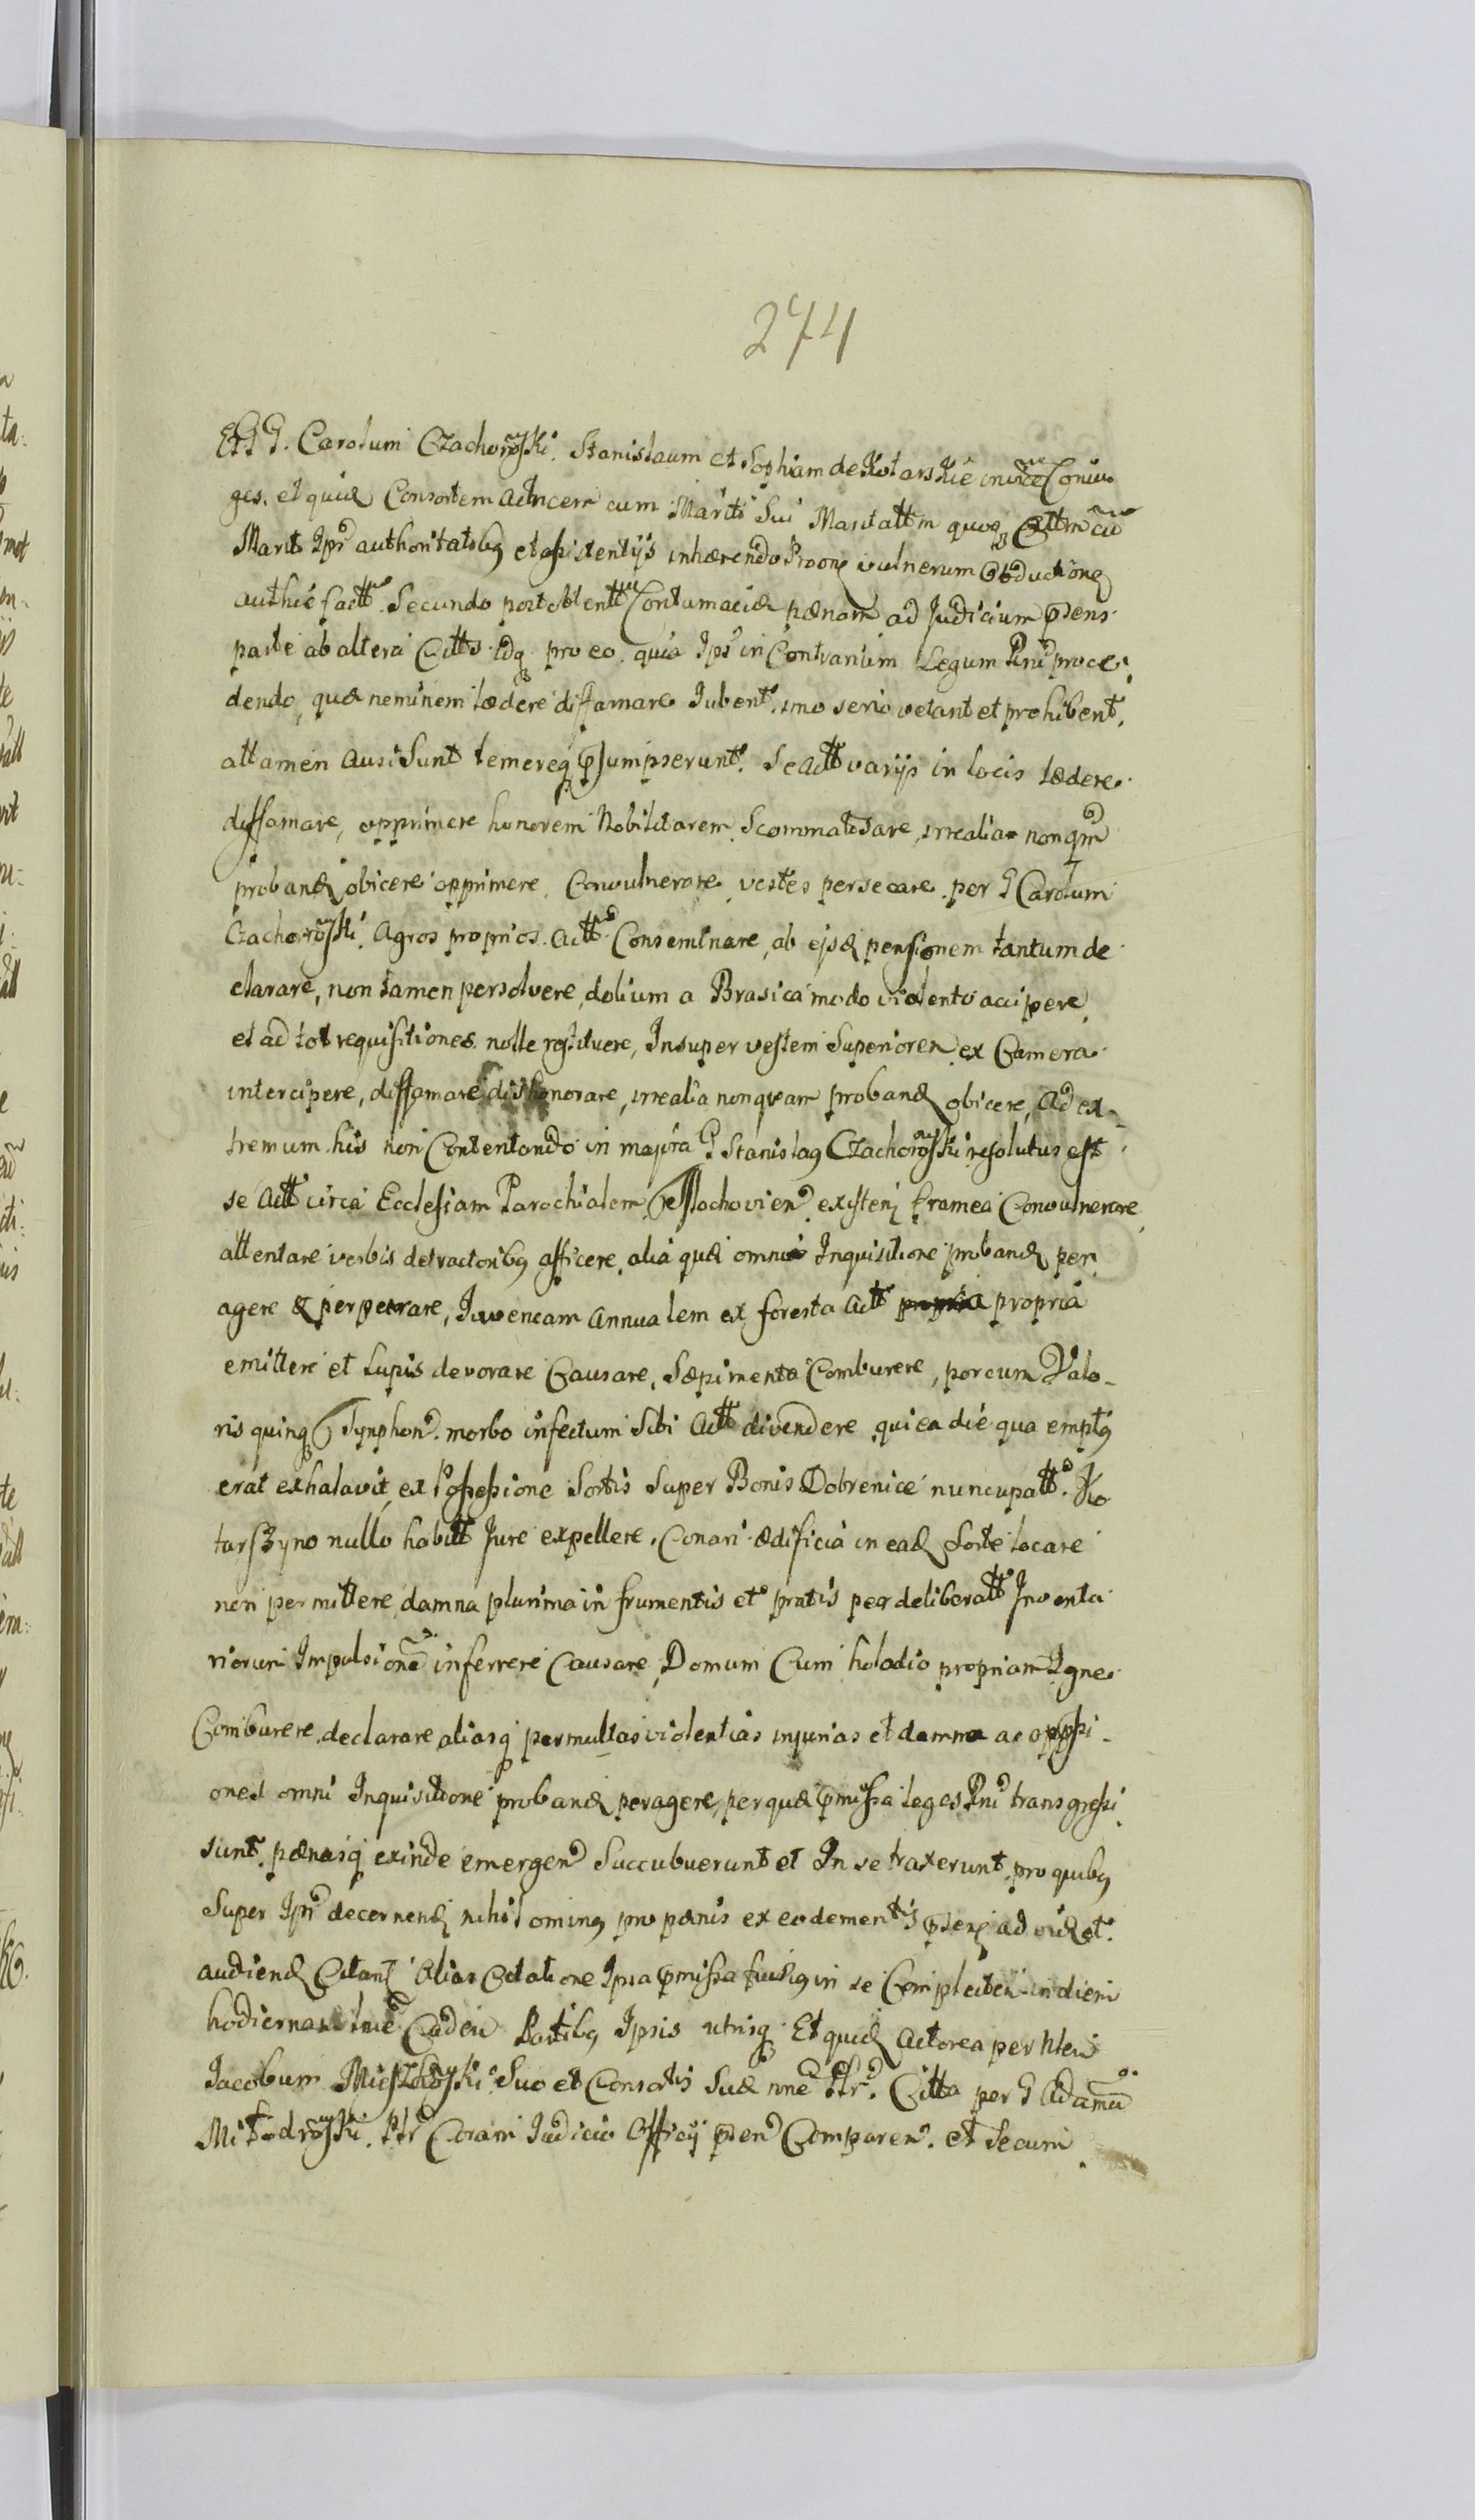 274
Et G. Carolum Czachorowski. Stanislaum et Sophiam de Kotarskie invicem Coniu-
ges. et quid Consortem Actricem cum Mariti Sui Maritattm quoq Cittm cu
Marit Ipr authoritatibq et assistentijs inhærendo vulnerum Obductione
authe factt. Secundo post obtenttm Contumaciæ pænam ad Judicium pdens
parte ab altera Citts Idq pro eo. quia Ips in Contrarium Legum Rni proce-
dendo, quæ neminem lædere diffamare Iubent. imo serio vetant et prohibent.
attamen Ausi Sunt temereq psumpserunt. Se Actt varijs in locis lædere
diffamare, opprimere honorem Nobilitarem Scommatisare, irrealia nonqm
proband obicere opprimere, Convulnerare, vestes persecare per G Carolum
Czachorowski. Agros proprios. Actt Conseminare, ab ejsd pensionem tantum de
clarare, non tamen persolvere, dolium a Brasica modo violento accipere,
et ad tot requisitiones nolle restituere, Insuper vestem Superiorem ex Camera
intercipere, diffamare dishonorare, irrealia nonquam proband obicere, Ad ex-
tremum his non Contentando in majora G Stanislaq Czachorowski resolutus est
se Actt circa Ecclesiam Parochialem existen framea Convulnerare,
attentare verbis detractoribq afficere, alia quæ omni Inquisitione proband per
agere & perpetrare, Juvencam Annualem ex foresta Actt propria propria
emittere et Lupis devorare Causare, Sæpimenta Comburere, porcum Valo-
ris quinq Tynphon. morbo infectum Sibi Actt divendere qui ea die qua emptq
erat exhalavit, ex Possessione Sortis Super Bonis Dobrenice nuncupatt. Ko
tarszyno nullo habitt Jure expellere, Conari ædificia in ead Sorte locare
non permittere, damna plurima in frumentis et pratis per deliberatt Inventa
riorum Impulsione inferrere Causare, Domum Cum holodio propriam Igne
Comburere declarare aliasq permultas violentias injurias et damna ac oppssi-
ones omni Inquisitione proband peragere, per quæ pmissa leges Rni transgressi
sunt. pænasq exinde emergen Succubuerunt et In se traxerunt, pro quibq
Super Ipr decernend nihilominq pro pænis ex eisdem pten ad vid et
audiend Citant Alias Citatione Ipsa pmissa in se Complecten in diem
hodiernam Caden Partibq Ipsis utrisq Et quid Actorea per Nlem
Jacobum Suo et Consortis Suæ nne. Citta per G Adamum
Coram Iudicio Officij pden Comparen. et Secum